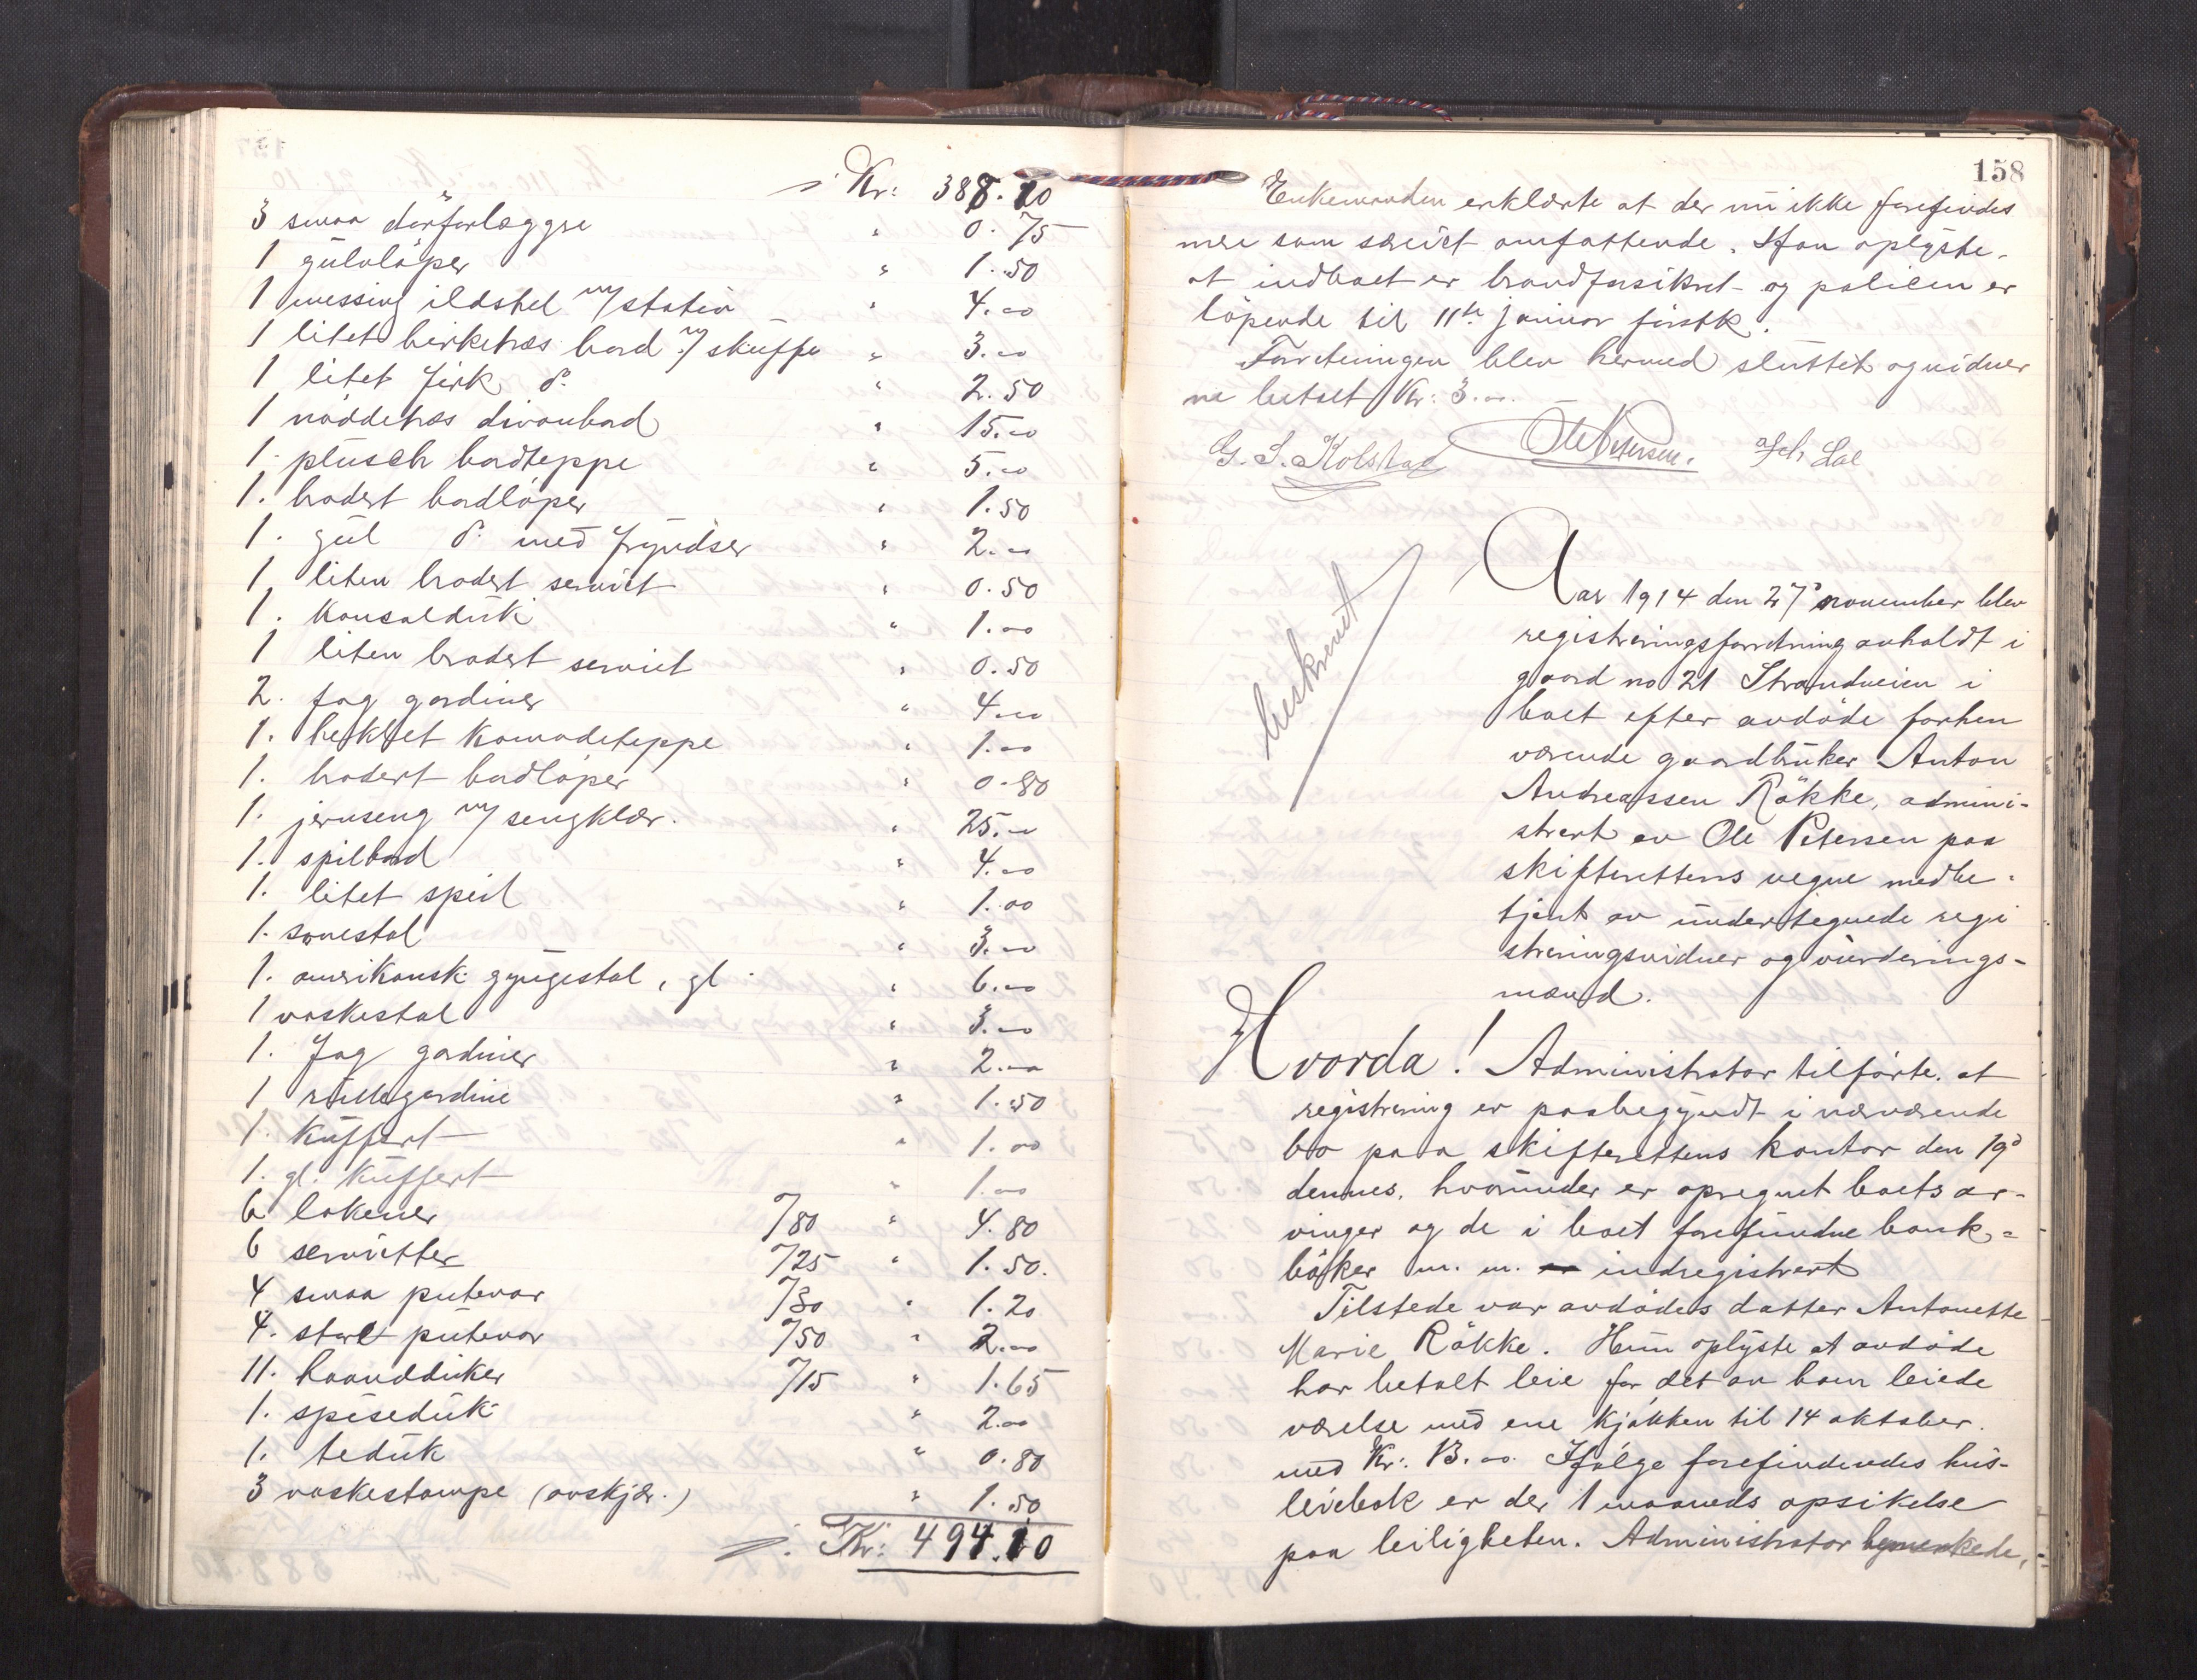 Kr: 388.10
3 smaa dørforlæggere " 0.75
1 gulvløper " 1.50
1 messing ildstel m/stativ " 4.00
1 litet birketræs bord m/ skuffe " 3.00
1 litet firk. do. " 2.50
1 nøddetræs divanbord " 15.00
1. plüsch bordteppe " 5.00
1. brodert bordløper " 1.50
1. gul do. med fryndser " 2.00
1 liten brodert serviet " 0.50
1. konsoldük " 1.00
1 liten brodert serviet " 0.50
2. fag gardiner " 4.00
1. heklet komodeteppe " 1.00
1. brodert bordløper " 0.80
1. jernseng m/ sengklær. " 25.00
1. spilbord " 4.00
1. litet speil " 1.00
1. sovestol " 3.00
1. amerikansk gyngestol, gl. " 6.00
1 vaskestol " 3.00
1. fag gardiner " 2.00
1 rullegardine " 1.50
1. kuffert " 1.00
1. gl. kuffert " 1.00
6 lakener %80 " 4.80
6 servietter %25 " 1.50.
4 smaa putevar %30 " 1.20
4. store putevar %50 " 2.00
11. haandduker %15 " 1.65
1. spisedük " 2.00
1. tedük " 0.80
3 vaskestampe (avskjær.) " 1.50
Kr: 494.10
158
Enkemanden erklærte at der nu ikke forefindes
mere som særeiet omfattende. Han oplyste,
at indboet er brandforsikret og policen er
løpende til 11te januar førstk.
Forretningen blev hermed sluttet og vidner
ne betalt Kr: 3.00.
G. S. Kolstad Ole Petersen. Joh. Lal
beskrevet
Aar 1914 den 27de november blev
registreringsforretning avholdt i
gaard no 21 Strandveien i
boet efter avdøde forhen
værende gaardbruker Anton
Andreassen Røkke, admini-
strert av Ole Petersen paa
skifterettens vegne medbe-
tjent av undertegnede regi
streringsvidner og vurderings-
mænd.
Hvorda! Administrator tilførte, at
registrering er paabegyndt i nærværende
bo paa skifterettens kontor den 19de
dennes, hvorunder er opregnet boets ar-
vinger og de i boet forefundne bank-
bøker m. m. er indregistrert
Tilstede var avdødes datter Antonette
Marie Røkke. Hun oplyste at avdøde
har betalt leie for det av ham leiede
værelse med ene kjøkken til 14 oktober.
med Kr: 13.00. Ifølge forefindendes hus-
leiebok er der 1 maaneds opsikelse
paa leiligheten. Administrator bemerkede,